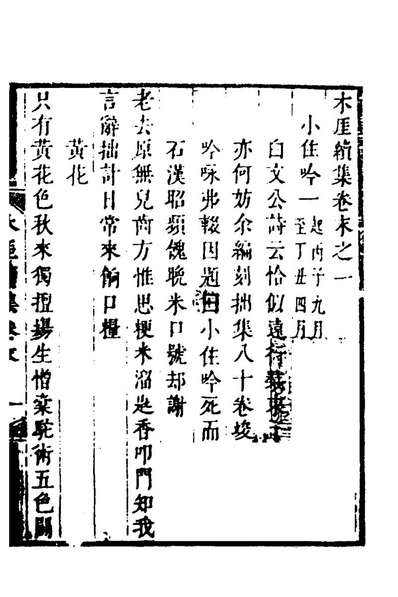 木厓續集卷末之一
小住吟一 起丙子九月至丁丑四月
白文公詩云恰似遠行
亦何妨余編刻拙集八十卷竣
吟咏弗輟因題曰小住吟死而
石漢昭頻餽晚米口號却謝
老去原無兒啇方惟思粳米溜匙香叩門知我
言辭拙計日常來餉口糧
黃花
只有黃花色秋來獨擅塲生憎橐駝術五色鬭
木厓續集卷末 一